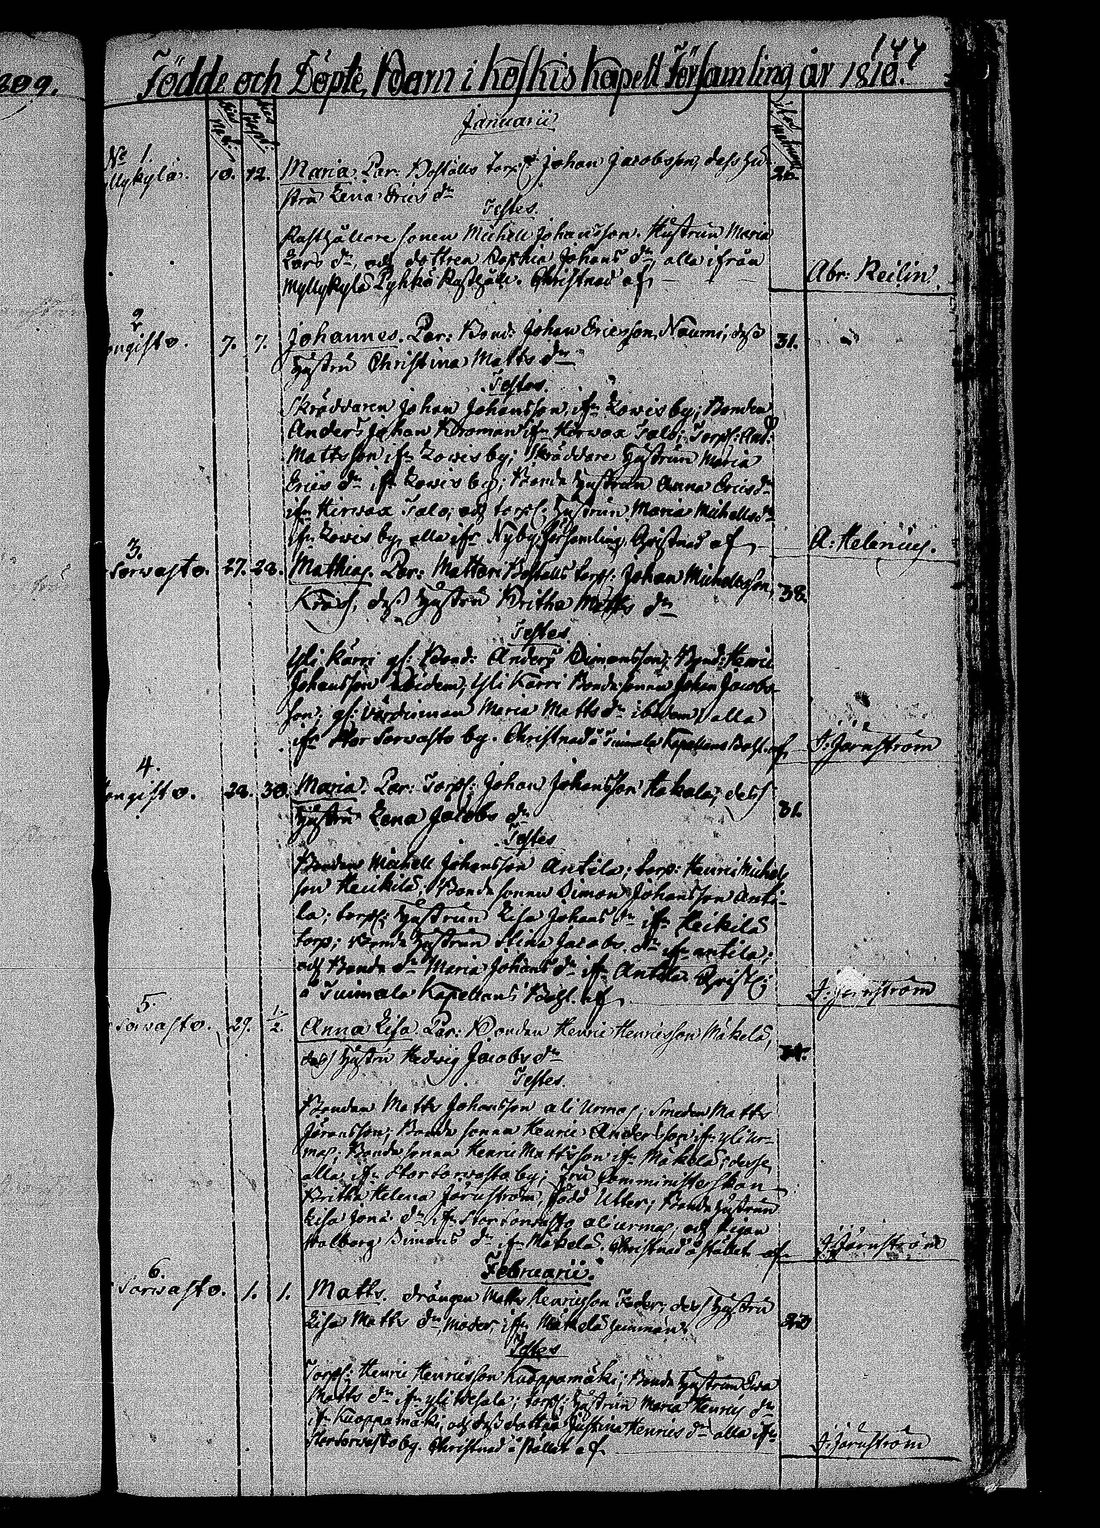 809.
144
Födde och Döpte Barn i Koskis Kapell Församling år 1810.
Januarii
No 1.
10. 12. Maria. Par: Boställs torp: Johan Jacobsson, dess hu-
stru Lena Erics dr
26.
Testes.
Rusthållare sonen Michell Johansson. Hustrun Maria
Lars dr och dottren Sophia Johans dr alla ifrån
Myllykylä Pyhkö Rusthåll. Christnad af
Abr: Reilin.
2.
7. 7. Johannes. Par: Bond: Johan Ericsson Naumi, dess
31.
hustru Christina Matts dr
Testes.
Skräddaren Johan Johansson, ifr Lowis by; Bonden
Anders Johan Kroman ifr Hirwax Talo; Torp: And:
Mattsson ifr Lowis by; Skräddare Hustrun Maria
Erics dr ifr Lowis by; Bonde Hustrun Anna Erics dr
ifr Hirwax Talo, och torp: Hustrun Maria Michells dr
ifr Lowis by, alla ifr Nyby församling. Christnad af
A: Helenius.
3.
Sorvasto. 27. 28. Mathias. Par: Boställs torp: Johan Michelsson
38.
dess Hustru Britha Matts dr
Testes
Yli Karri gl: Bond: Anders Simonsson; Bond: Henric
Johansson ibidem; Yli Karri Bonde sonen Johan Jacobs-
son; gl: värdinnan Maria Matts dr ibidem, alla
ifr Stor Sorvasto by. Christnad å Tuimala Kapellans Bohl. af
J: Jernström
4.
28. 30. Maria. Par: Torp: Johan Johansson Hakala; dess
31.
Hustru Lena Jacobs dr
Testes
Bonden Michell Johansson Antila; torp: Henric Michels
son Heikilä; Bonde sonen Simon Johansson Anti-
la; torp: Hustrun Lisa Johans dr ifr Heikilä
torp; Bonde Hustrun Stina Jacobs dr ifr Antila;
och Bonde dr Maria Johans dr ifr Antila. Christ:
å Tuimala Kapellans Bohl. af
J: Jernström
5.
Sorvasto. 29. 1/2. Anna Lisa. Par: Bonden Henric Henricsson Mäkelä,
dess Hustru Hedvig Jacobs dr
Testes.
Bonden Matts Johansson ali Urmas; Smeden Matts
Jöransson; Bonde sonen Henric Andersson ifr yli Ur-
mas; Bonde sonen Henric Mattsson ifr Mäkelä; desse
alla ifr Stor Sorvasto by; Fru Comministerskan
Britha Helena Järnström, född Utter; Bonde Hustrun
Lisa Jons dr ifr Stor Sorvasto ali urmas; och Pigan
Walborg Simons dr ifr Mäkelä. Christnad å stället af
J: Jernström
Februarii.
6.
Sorvasto. 1. 1. Matts. drängen Matts Henricsson Fader, dess Hustru
Lisa Matts dr Moder, ifr Mäkelä
Testes
Torp: Henric Henricsson Kuoppamäki; Bonde Hustrun Ewa
Matts dr ifr yli torp: Hustrun Maria Henrics dr
ifr Kuoppamäki, och dess dotter Justina Henrics dr alla ifr
Storsorvasto by. Christnad å stället af
J: Jernström